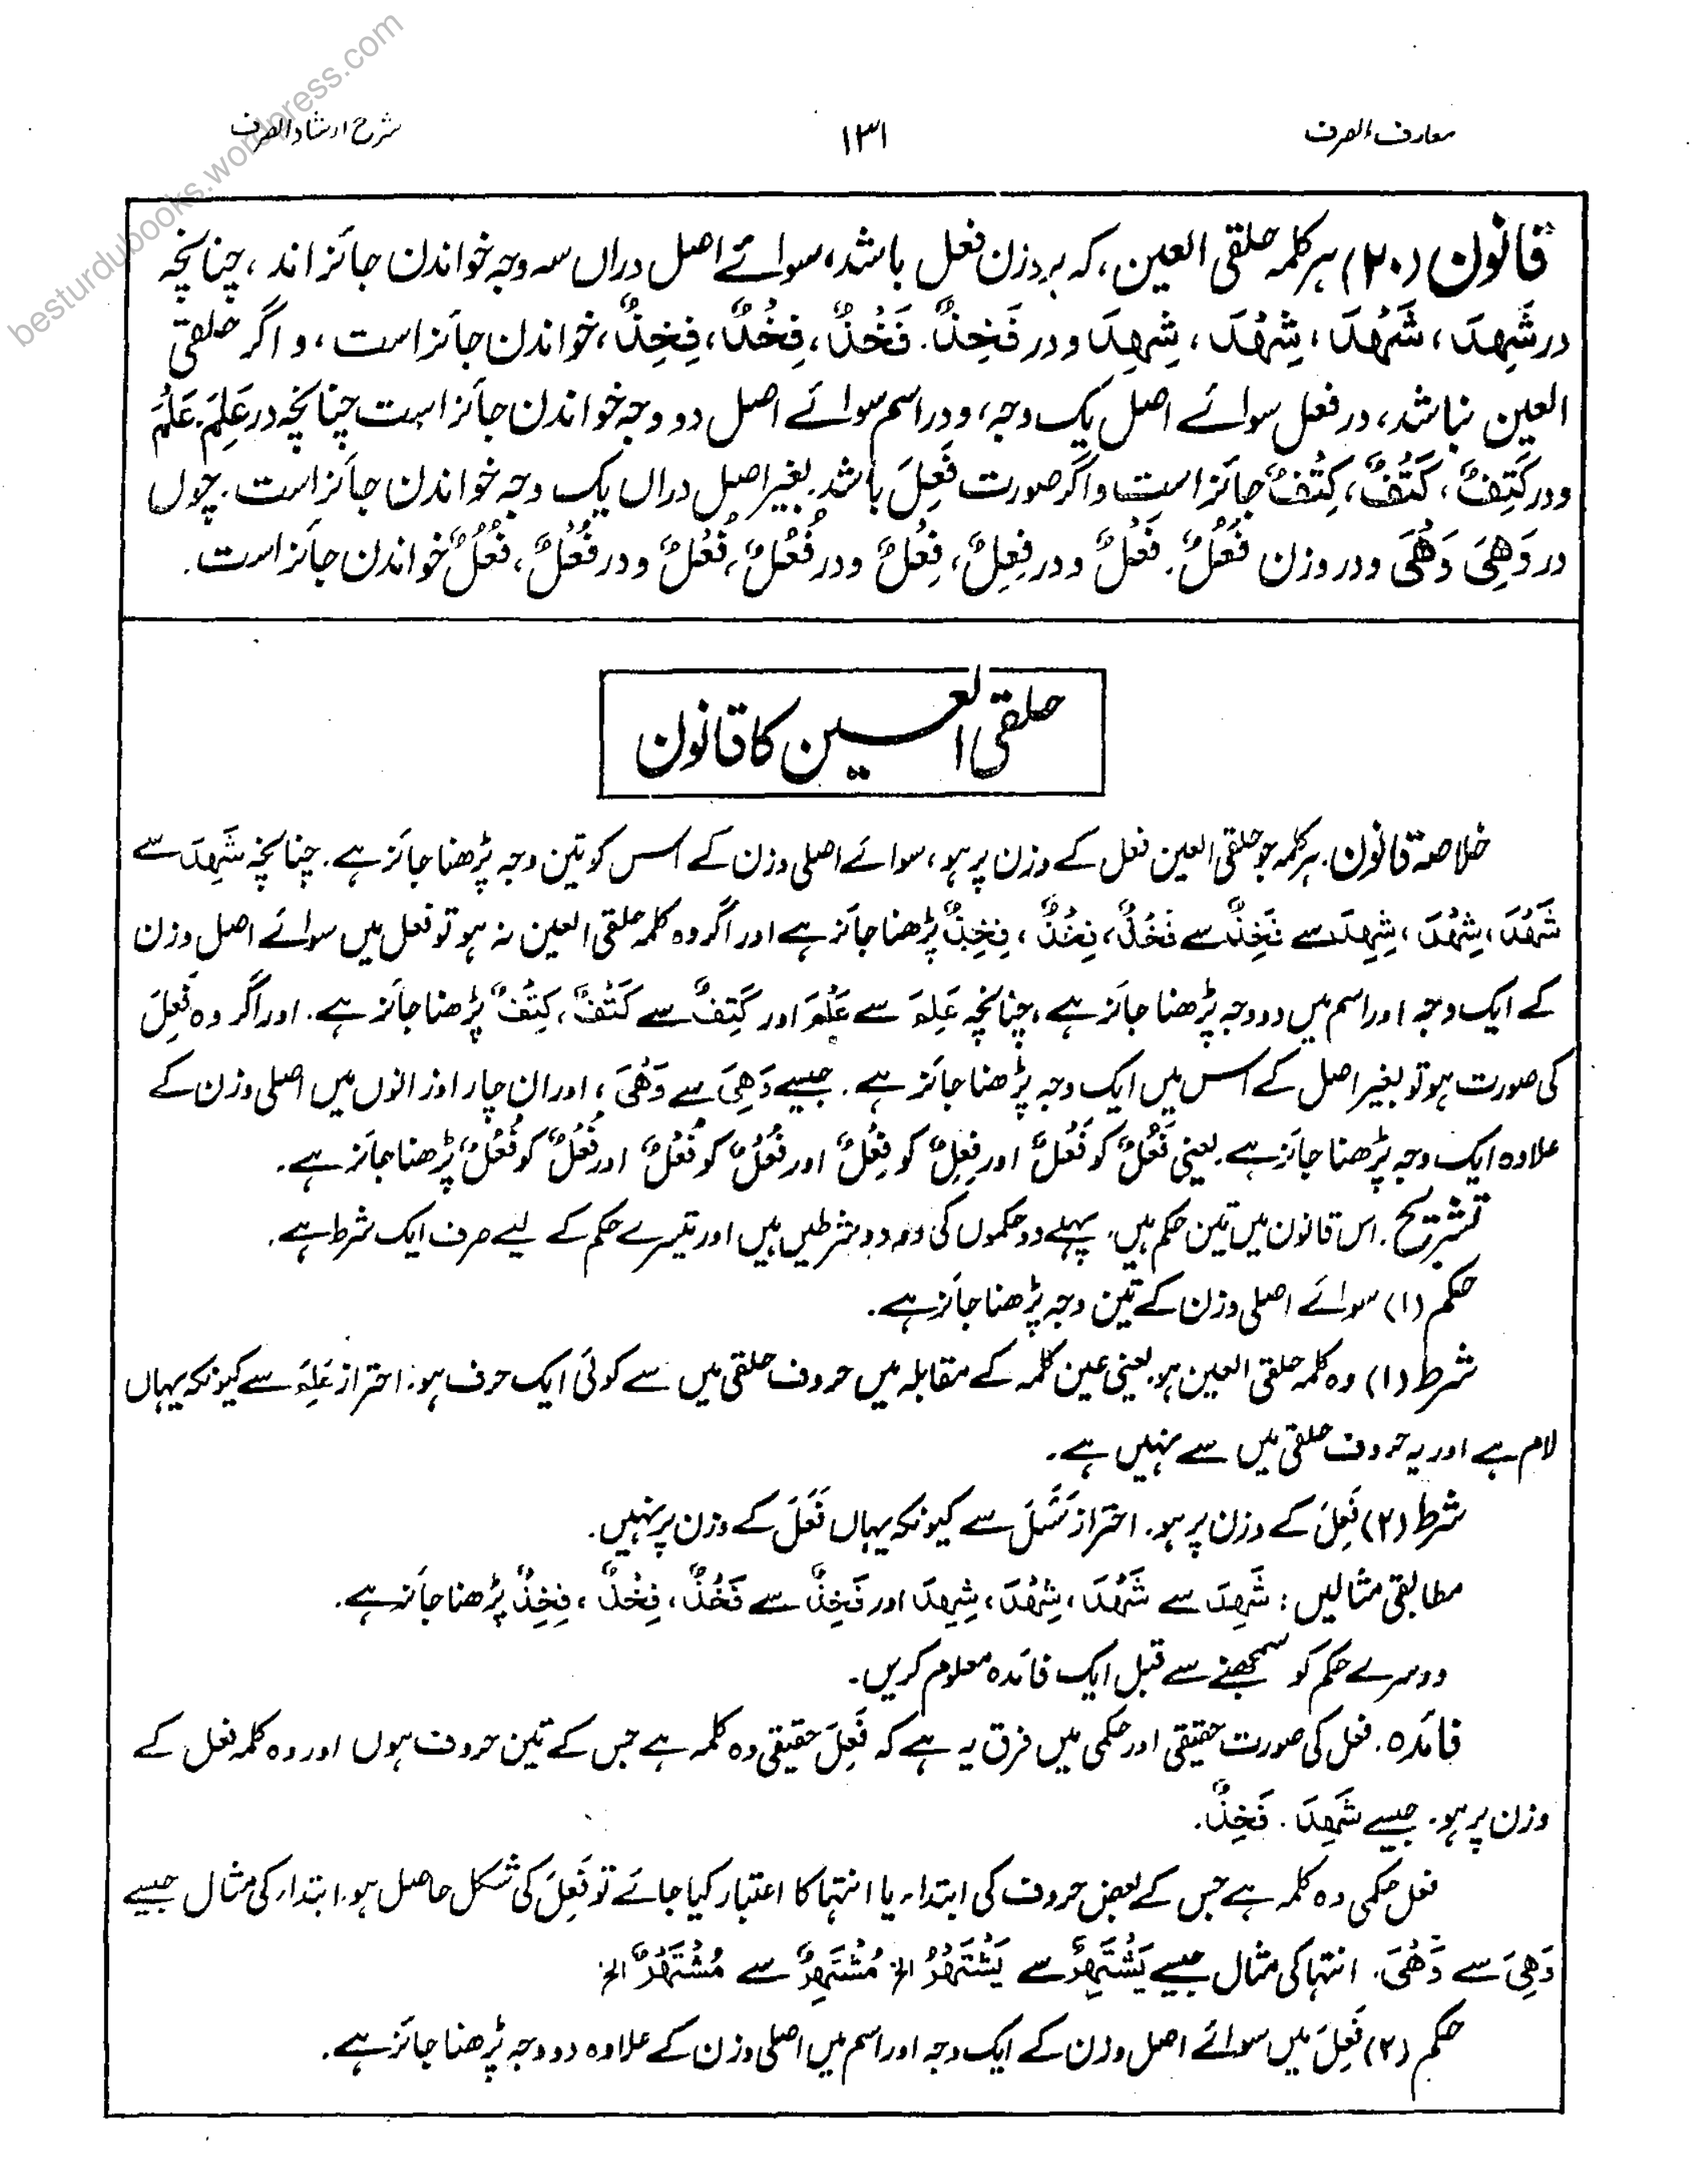 besturdubooks.wordpress.com
معارف الصرف ۱۳۱ شرح ارشاد الصرف
قانون (۲۰) ہر کلمہ حلقی العین، کہ بر وزن فعل باشد، سوائے اصل دراں سہ وجہ خواندن جائز اند، چنانچہ
در شَهِدَ، شَهْدَ، شِهْدَ، شِهِدَ و در فَخِذٌ. فَخْذٌ، فِخْذٌ، فِخِذٌ، خواندن جائز است، و اگر حلقی
العین نباشد، در فعل سوائے اصل یک وجہ، و در اسم سوائے اصل دو وجہ خواندن جائز است چنانچہ در عَلِمَ. عَلْمَ
و در كَتِفٌ، كَتْفٌ، كِتْفٌ جائز است و اگر صورت فَعِلَ باشد. بغیر اصل دراں یک وجہ خواندن جائز است. چوں
در وَهِيَ وَهْيَ و در وزن فَعُلٌ. فَعْلٌ و در فِعِلٌ، فِعْلٌ و در فُعْلٌ، فُعُلٌ و در فُعُلٌ، فُعْلٌ خواندن جائز است.
حلقی العین کا قانون
خلاصۂ قانون. ہر کلمہ جو حلقی العین فعل کے وزن پر ہو، سوائے اصلی وزن کے اس کو تین وجہ پڑھنا جائز ہے. چنانچہ شَهِدَ سے
شَهْدَ، شِهْدَ، شِهِدَ سے فَخِذٌ سے فَخْذٌ، فِخْذٌ، فِخِذٌ پڑھنا جائز ہے اور اگر وہ کلمہ حلقی العین نہ ہو تو فعل میں سوائے اصل وزن
کے ایک وجہ اور اسم میں دو وجہ پڑھنا جائز ہے، چنانچہ عَلِمَ سے عَلْمَ اور كَتِفٌ سے كَتْفٌ، كِتْفٌ پڑھنا جائز ہے. اور اگر وہ فَعِلَ
کی صورت ہو تو بغیر اصل کے اس میں ایک وجہ پڑھنا جائز ہے. جیسے وَهِيَ سے وَهْيَ، اور ان چار اوزانوں میں اصلی وزن کے
علاوہ ایک وجہ پڑھنا جائز ہے. یعنی فَعُلٌ کو فَعْلٌ اور فِعِلٌ کو فِعْلٌ اور فُعُلٌ کو فُعْلٌ اور فُعْلٌ کو فُعُلٌ پڑھنا جائز ہے۔
تشریح. اس قانون میں تین حکم ہیں. پہلے دو حکموں کی دو دو شرطیں ہیں اور تیسرے حکم کے لیے صرف ایک شرط ہے.
حکم (۱) سوائے اصلی وزن کے تین وجہ پڑھنا جائز ہے.
شرط (۱) وہ کلمہ حلقی العین ہو. یعنی عین کلمہ کے مقابلہ میں حروف حلقی میں سے کوئی ایک حرف ہو. احتراز عَلِمَ سے کیونکہ یہاں
لام ہے اور یہ حروف حلقی میں سے نہیں ہے۔
شرط (۲) فَعِلَ کے وزن پر ہو. احتراز سَئَلَ سے کیونکہ یہاں فَعِلَ کے وزن پر نہیں.
مطابقی مثالیں: شَهِدَ سے شَهْدَ، شِهْدَ، شِهِدَ اور فَخِذٌ سے فَخْذٌ، فِخْذٌ، فِخِذٌ پڑھنا جائز ہے.
دوسرے حکم کو سمجھنے سے قبل ایک فائدہ معلوم کریں۔
فائدہ. فعل کی صورت حقیقی اور حکمی میں فرق یہ ہے کہ فَعِلَ حقیقی وہ کلمہ ہے جس کے تین حروف ہوں اور وہ کلمہ فعل کے
وزن پر ہو. جیسے شَهِدَ. فَخِذٌ.
فعل حکمی وہ کلمہ ہے جس کے بعض حروف کی ابتداء یا انتہا کا اعتبار کیا جائے تو فَعِلَ کی شکل حاصل ہو. ابتداء کی مثال جیسے
وَهِيَ سے وَهْيَ. انتہا کی مثال جیسے يَشْتَهِرُ سے يَشْتَهْرُ الخ مُشْتَهِرٌ سے مُشْتَهْرٌ الخ
حکم (۲) فَعِلَ میں سوائے اصل وزن کے ایک وجہ اور اسم میں اصلی وزن کے علاوہ دو وجہ پڑھنا جائز ہے.